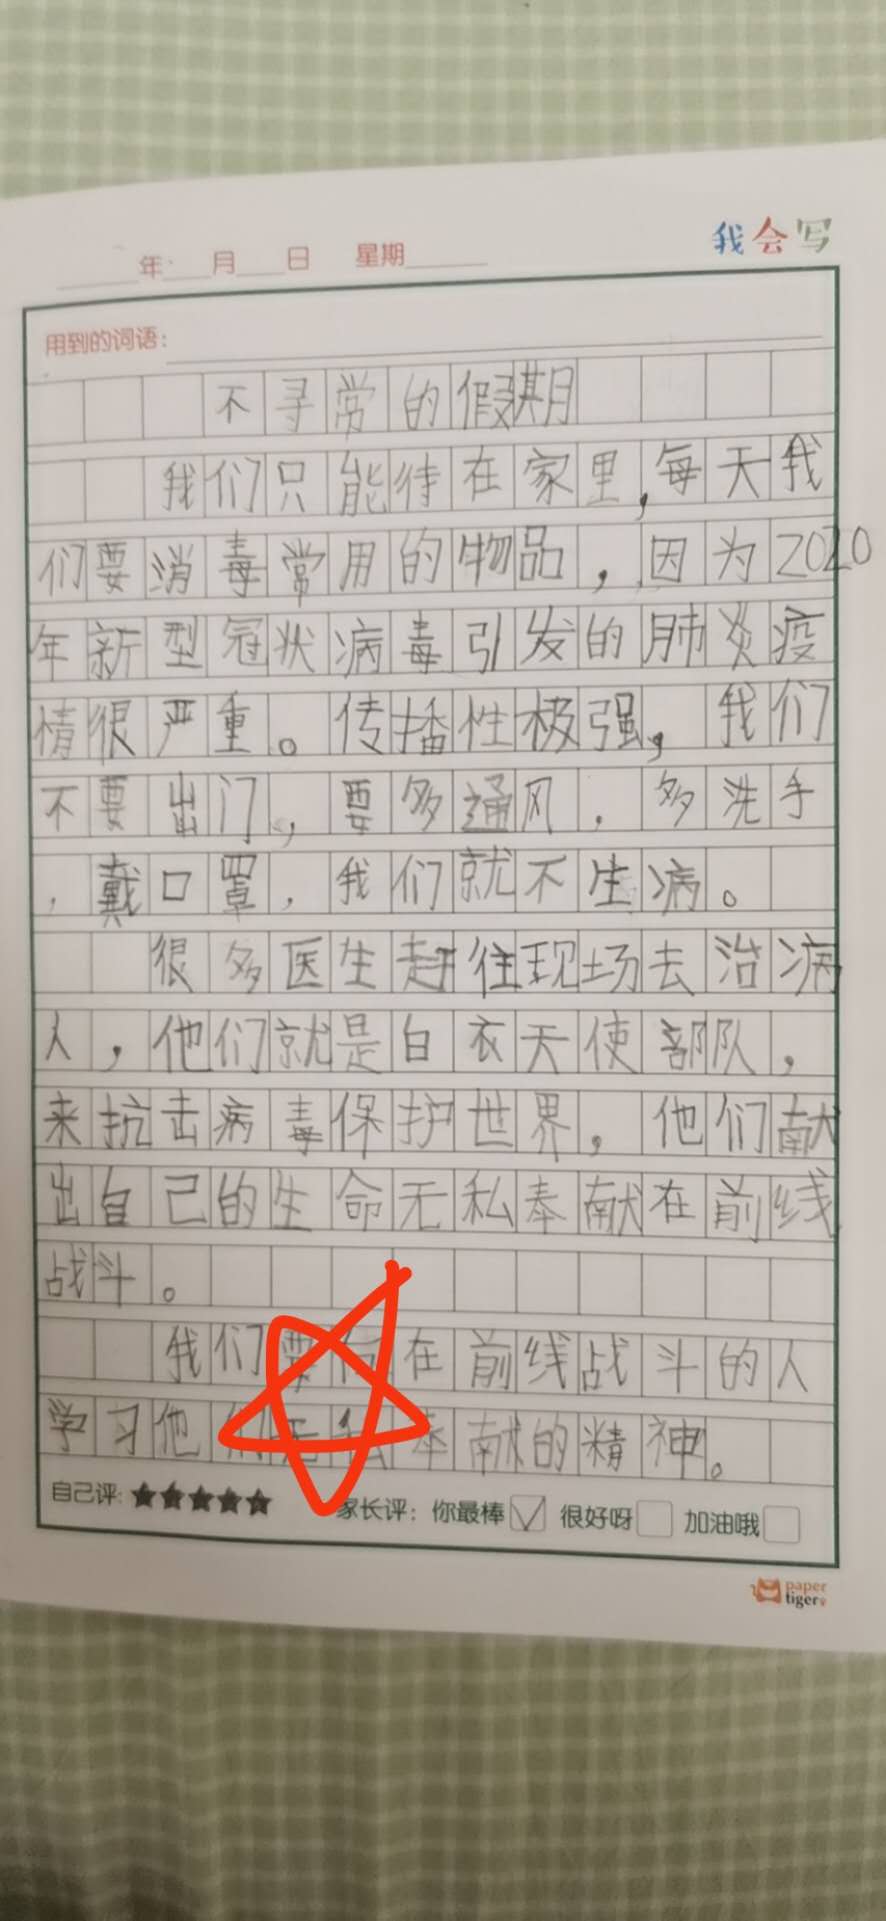 我会写
年 月 日 星期
用到的词语:
不寻常的假期
我们只能待在家里,每天我
们要消毒常用的物品,因为2020
年新型冠状病毒引发的肺炎疫
情很严重。传播性极强,我们
不要出门,要多通风,多洗手
,戴口罩,我们就不生病。
很多医生赶往现场去治病
人,他们就是白衣天使部队,
来抗击病毒保护世界,他们献
出自己的生命无私奉献在前线
战斗。
我们要向在前线战斗的人
学习他们无私奉献的精神。
自己评:★★★★★ 家长评:你最棒 ✓ 很好呀 加油哦
paper
tiger